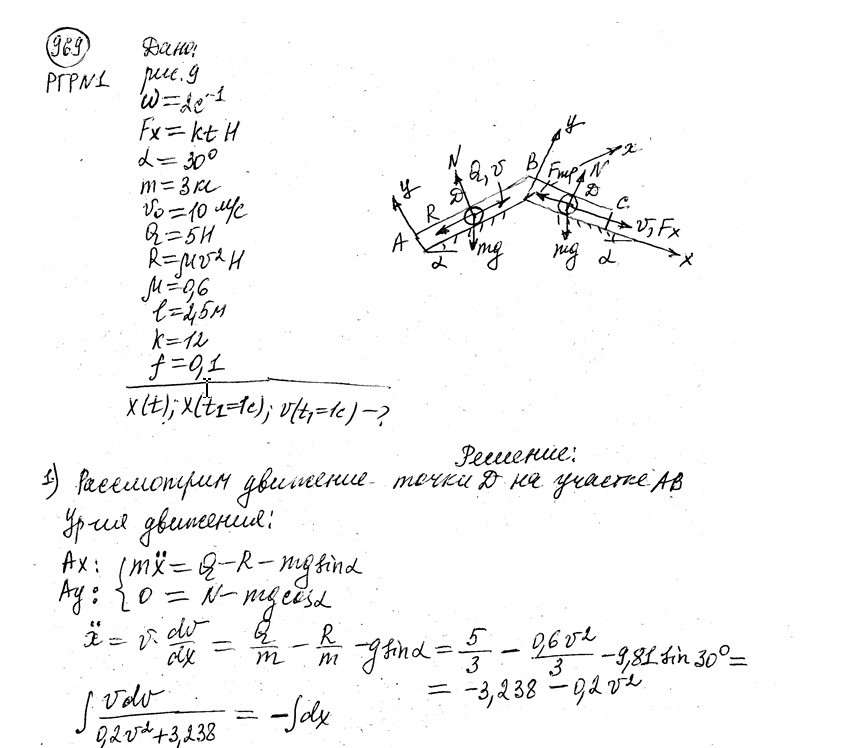 969
РГР№1
Дано:
рис. 9
ω = 2c⁻¹
Fx = kt H
α = 30°
m = 3 кг
v₀ = 10 м/с
Q = 5H
R = μv² H
μ = 0,6
l = 2,5м
k = 12
f = 0,1
x(t); x(t₁=1c); v(t₁=1c) – ?
y
N
Q, v
D
R
A
α
mg
B
y
x
Fтр
N
D
C
v, Fx
mg
α
x
Решение:
1) Рассмотрим движение точки D на участке AB
Ур-ия движения:
Ax: { mẍ = Q – R – mg sinα
Ay: { 0 = N – mg cosα
ẍ = v · dv/dx = Q/m – R/m – g sinα = 5/3 – 0,6v²/3 – 9,81 sin 30° =
= –3,238 – 0,2v²
∫ vdv/(0,2v² + 3,238) = –∫dx